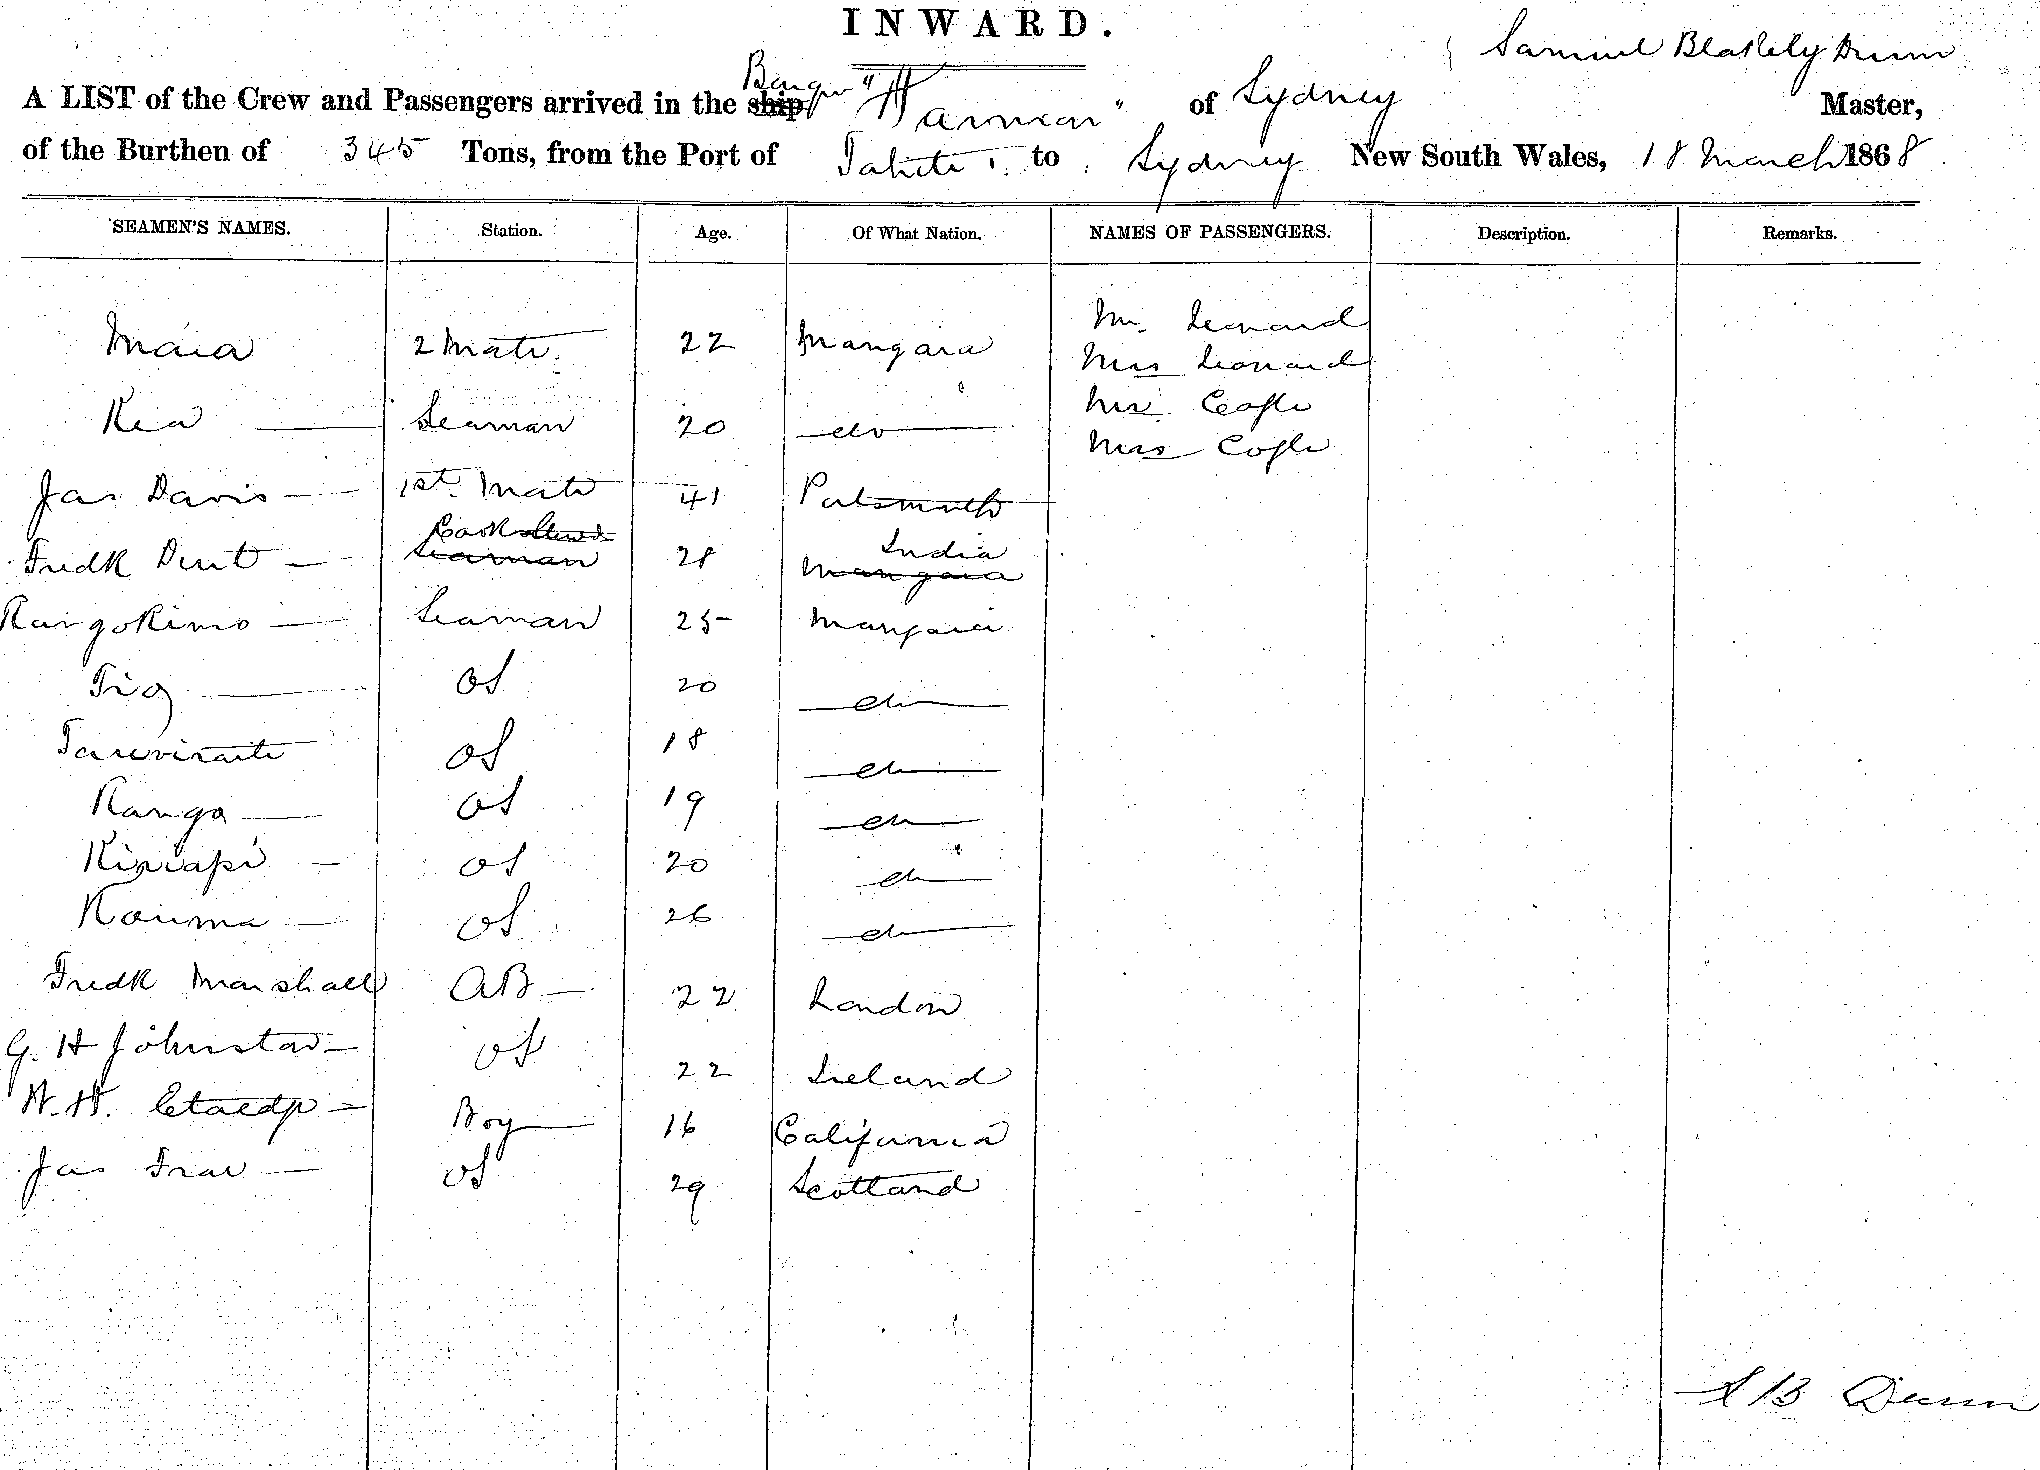 INWARD.
Samuel Blakely Dunn
A LIST of the Crew and Passengers arrived in the ship Barque " " of Sydney Master,
of the Burthen of 345 Tons, from the Port of Tahiti to Sydney New South Wales, 18 March 1868
SEAMEN'S NAMES. Station. Age. Of What Nation. NAMES OF PASSENGERS. Description. Remarks.
Mr. Leonard
Maia 2 Mate. 22 Mangaia
Mrs Leonard
Kea Seaman 20 do Mr. Cogle
Mrs Cogle
Jas Davis 1st Mate 41 Portsmouth
Cook & Stewd India
Fredk Dent Seaman 28 Mangaia
Seaman 25 Mangaia
OS 20 do
OS 18 do
Ranga OS 19 do
Kiriapi OS 20 do
Kauma OS 26 do
Fredk Marshall AB 22 London
G. H Johnston OS 22 Ireland
Boy 16 California
Jas OS 29 Scotland
S B Dunn